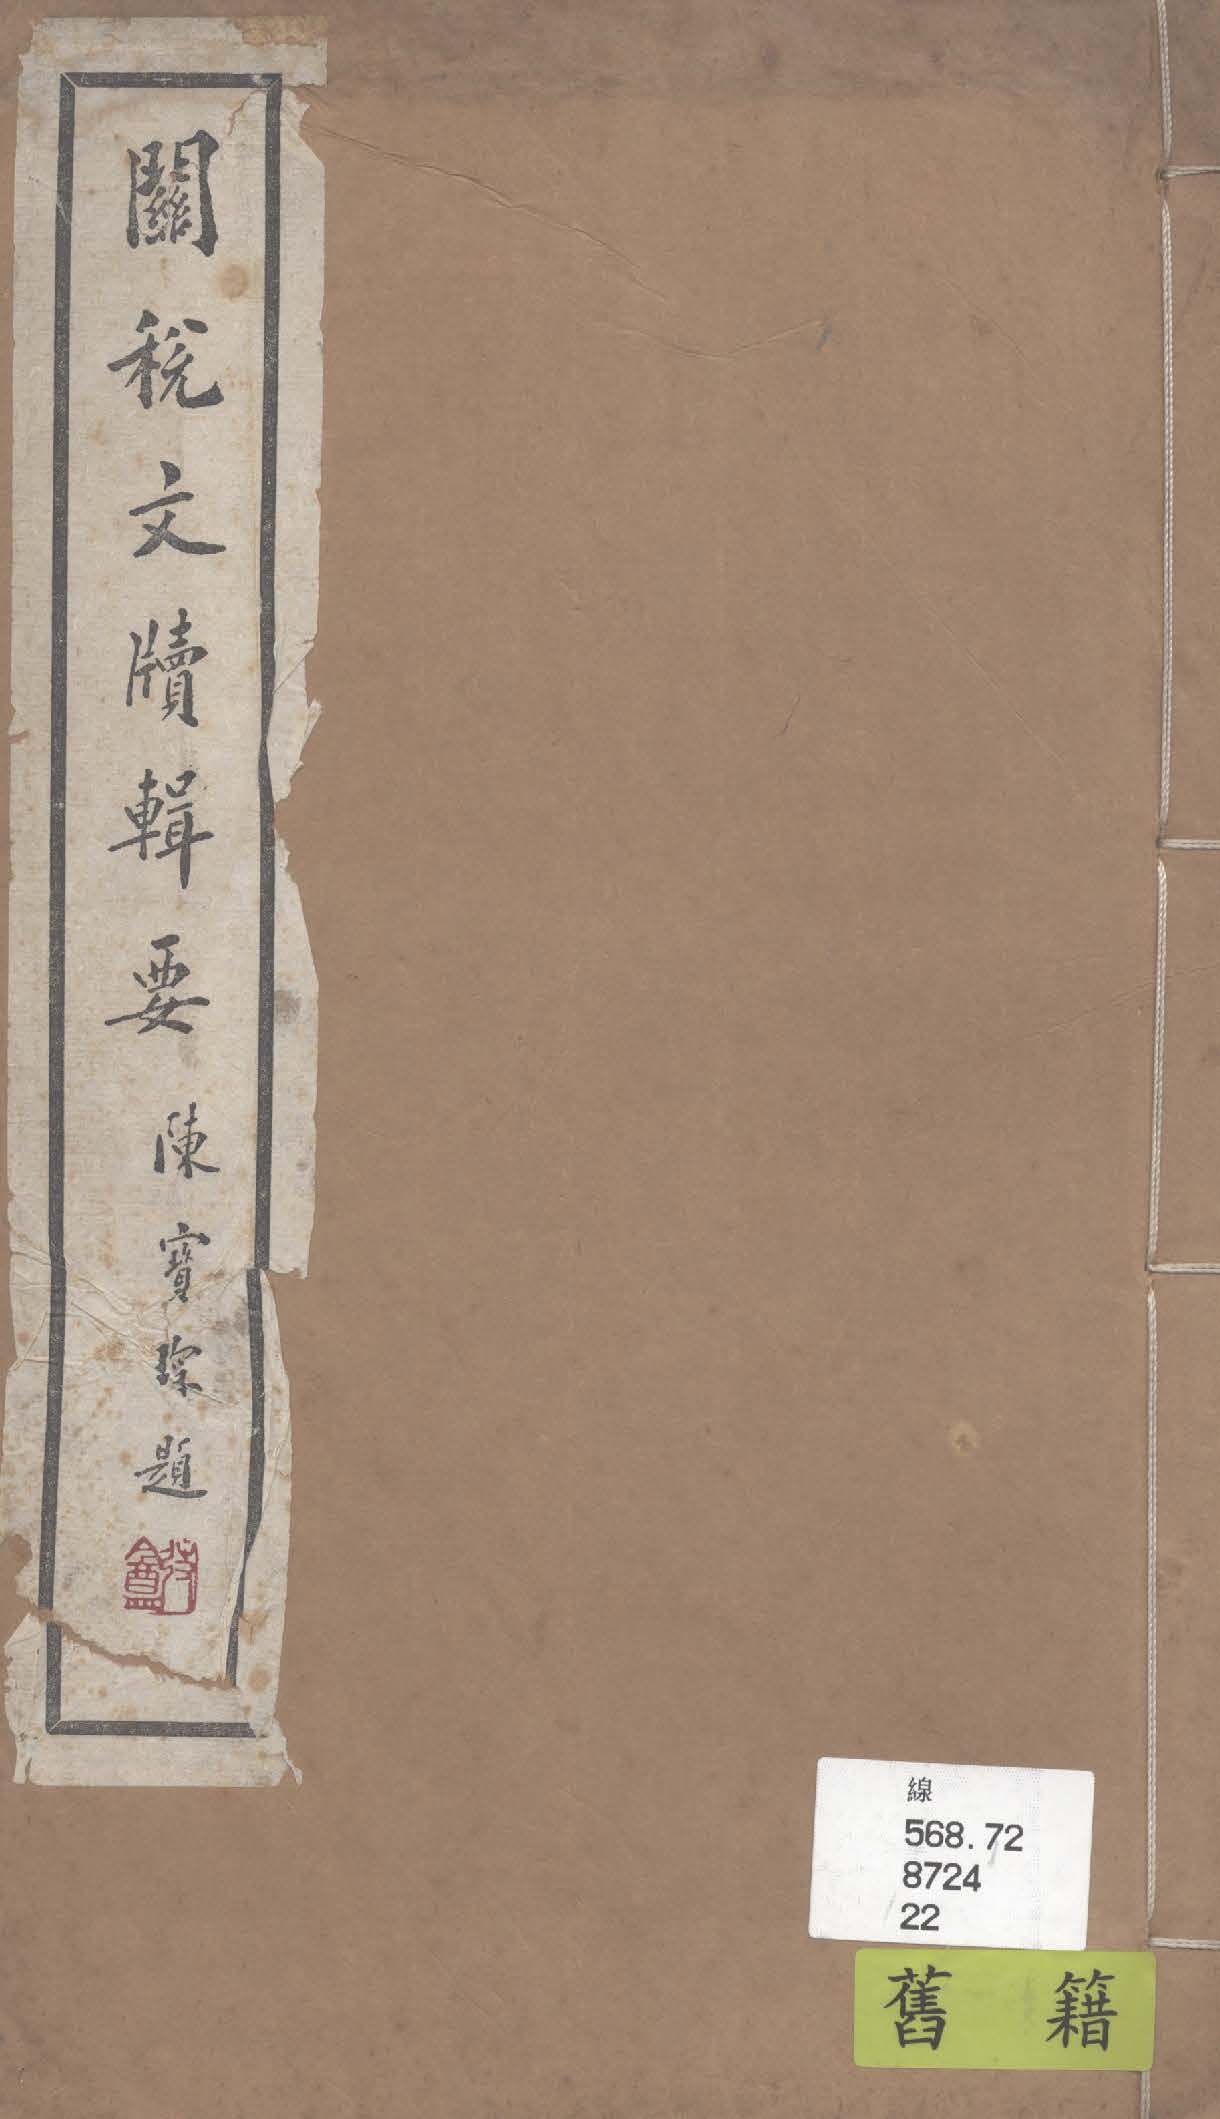 關稅文牘輯要
陳寶琛題
線
568.72
8724
22
舊籍